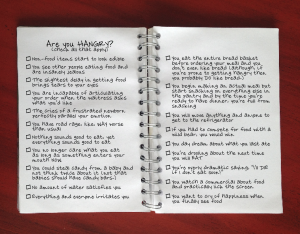 Are you HANGRY?
(check all that apply)
Non-food items start to look edible
You see other people eating food and
are insanely jealous
The slightest delay in getting food
brings tears to your eyes
You are incapable of articulating
your order when the waitress asks
what you'd like
The cries of a frustrated newborn
perfectly parallel your emotion
You have road rage like way worse
than usual
Nothing sounds good to eat, yet
everything sounds good to eat
You no longer care what you eat
as long as something enters your
mouth NOW
You could steal candy from a baby and
not think twice about it (not that
babies should have candy BUT.)
No amount of water satisfies you
Everything and everyone irritates you
You eat the entire bread basket
before ordering your meal and you
don't even like bread (although, if
you're prone to getting hangry then
you probably DO like bread.)
You begin making an actual meal but
start snacking on everything else in
the pantry and by the time you're
ready to have dinner, you're full from
snacking
You will mow anything and anyone to
get to the refrigerator
If you had to compete for food with a
wild bear, you would win
You day dream about what you last ate
You're drooling about the next time
you will EAT
You're overly dramatic saying, "I'll DIE
if I don't eat now!"
You watch a commercial about food
and practically lick the screen
You want to cry of happiness when
you finally see food